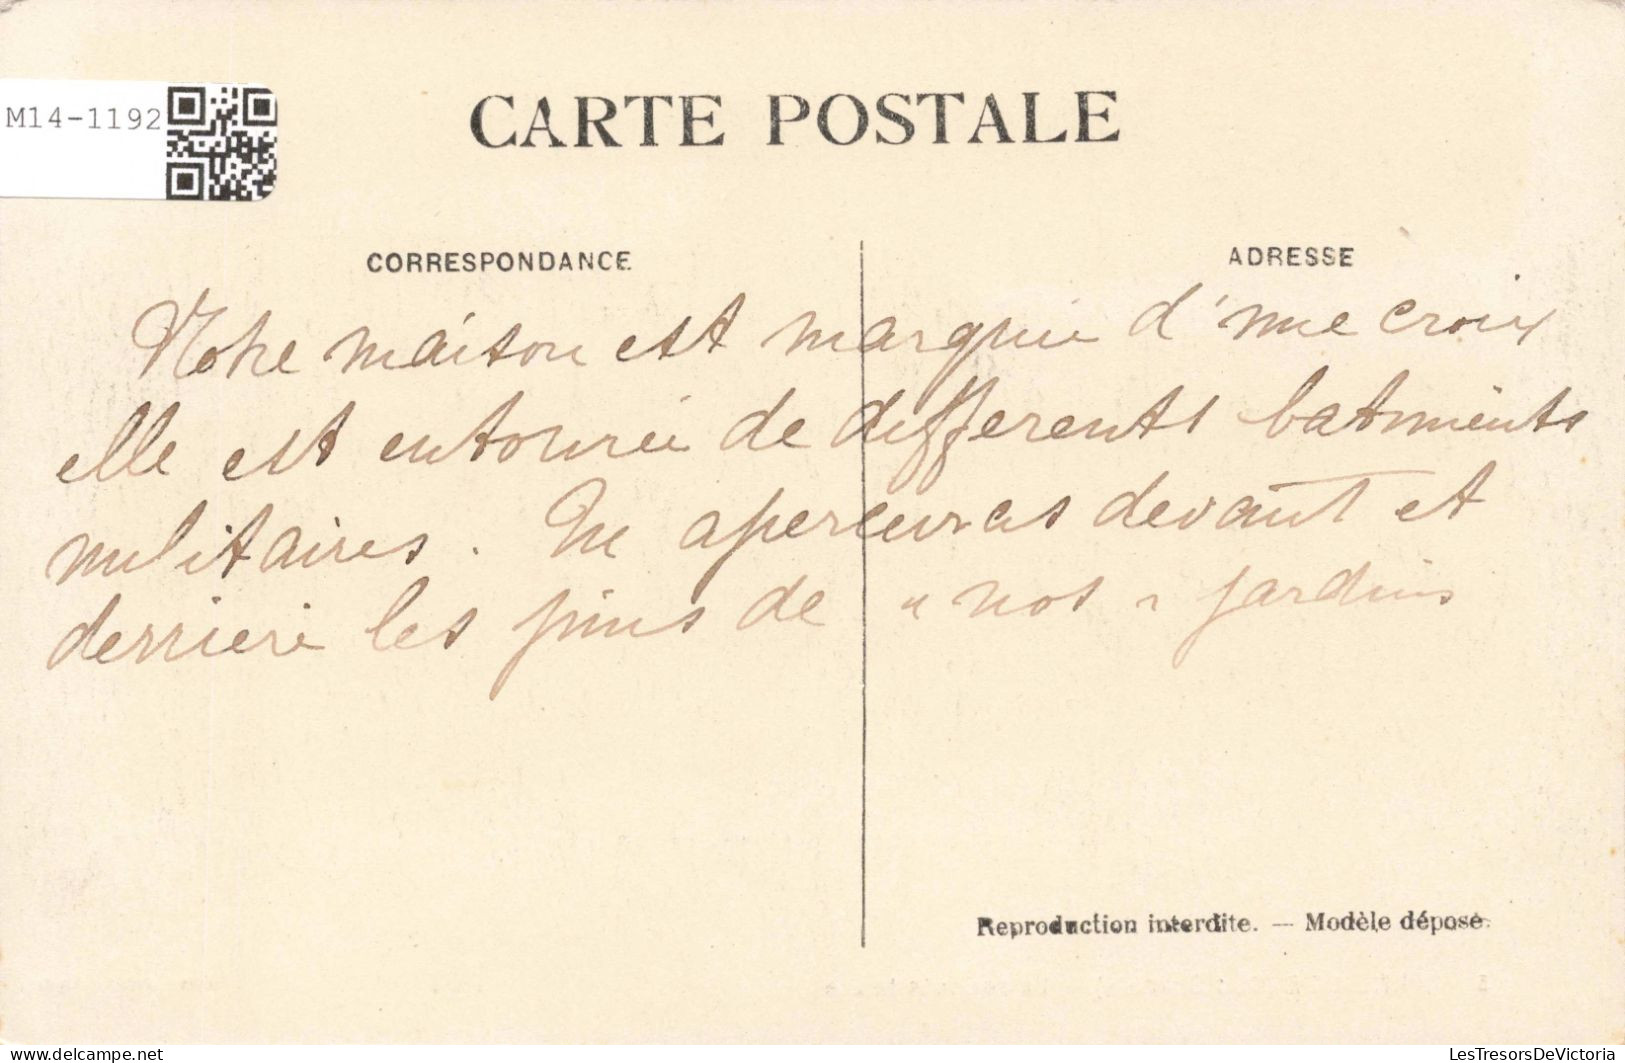 M14-1192
CARTE POSTALE
CORRESPONDANCE
ADRESSE
Notre maison est marquée d'une croix
elle est entourée de differents batiments
militaires. Tu apercevras devant et
derriere les pins de "nos" jardins
Reproduction interdite. — Modèle déposé.
www.delcampe.net
LesTresorsDeVictoria